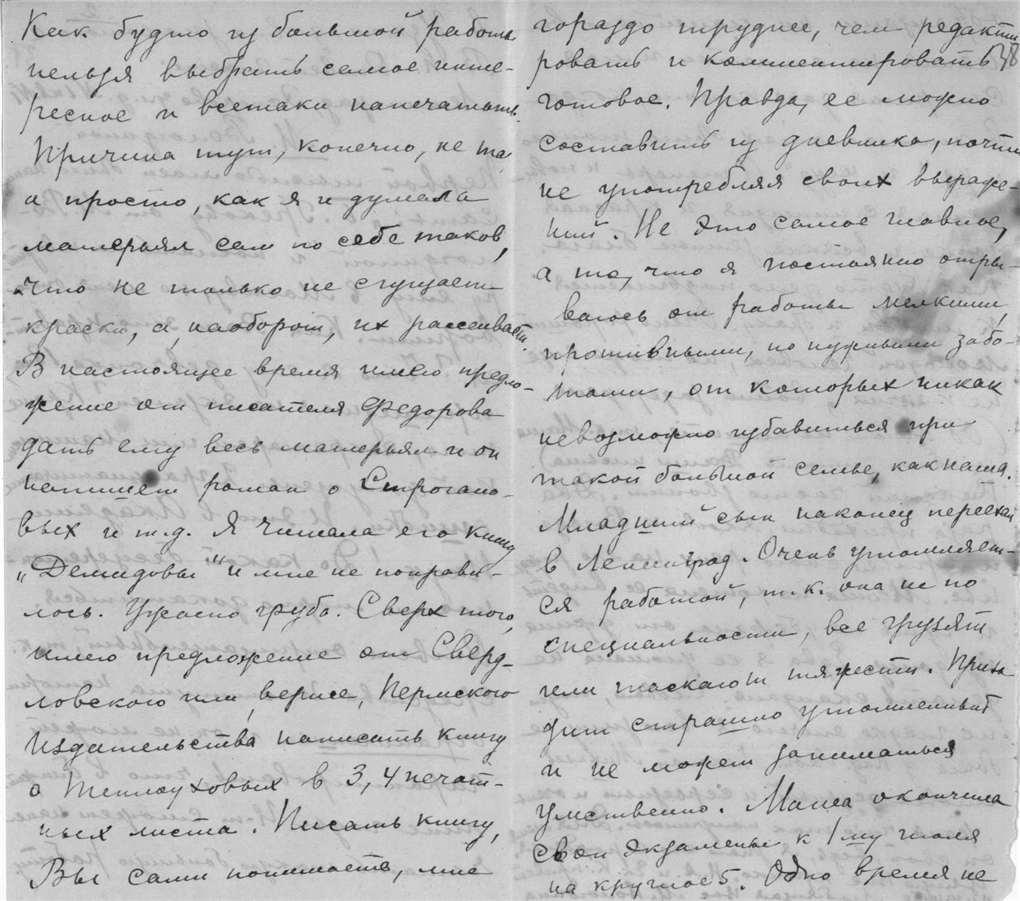 Как будто из большой работы
нельзя выбрать самое инте-
ресное и всетаки напечатать.
Причина тут, конечно, не та,
а просто, как я и думала
матерьял сам по себе таков,
что не только не сгущает
краски, а, наоборот, их рассеивает.
В настоящее время имею предло-
жение от писателя Федорова
дать ему весь матерьял и он
напишет роман о Строгано-
вых и т.д. Я читала его книгу
„Демидовы" и мне не понрави-
лось. Ужасно грубо. Сверх того,
имею предложение от Сверд-
ловского или, вернее, Пермского
издательства написать книгу
о Теплоуховых в 3, 4 печат-
ных листа. Писать книгу,
Вы сами понимаете, мне
гораздо труднее, чем редакти-
ровать и комментировать
готовое. Правда, ее можно
составить из дневника, почти
не употребляя своих выраже-
ний. Не это самое главное,
а то, что я постоянно отры-
ваюсь от работы мелкими,
противными, но нужными забо-
тами, от которых никак
невозможно избавиться при
такой большой семье, как наша.
Младший сын наконец переехал
в Ленинград. Очень утомляет-
ся работой, т.к. она не по
специальности, все грузят
или таскают тяжести. Прихо
дит страшно утомленный
и не может заниматься
умственно. Маша окончила
свои экзамены к 1му июля
на круглое 5. Одно время не